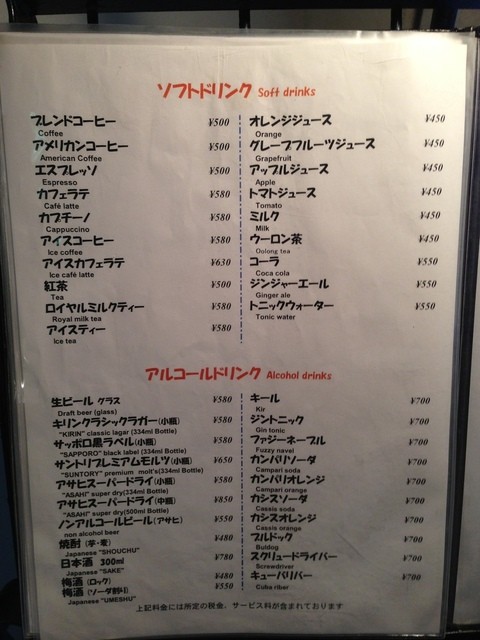 ソフトドリンク Soft drinks
ブレンドコーヒー ¥500
Coffee
アメリカンコーヒー ¥500
American Coffee
エスプレッソ ¥500
Espresso
カフェラテ ¥580
Café latte
カプチーノ ¥580
Cappuccino
アイスコーヒー ¥580
Ice coffee
アイスカフェラテ ¥630
Ice café latte
紅茶 ¥500
Tea
ロイヤルミルクティー ¥580
Royal milk tea
アイスティー ¥580
Ice tea
オレンジジュース ¥450
Orange
グレープフルーツジュース ¥450
Grapefruit
アップルジュース ¥450
Apple
トマトジュース ¥450
Tomato
ミルク ¥450
Milk
ウーロン茶 ¥450
Oolong tea
コーラ ¥550
Coca cola
ジンジャーエール ¥550
Ginger ale
トニックウォーター ¥550
Tonic water
アルコールドリンク Alcohol drinks
生ビール グラス ¥580
Draft beer (glass)
キリンクラシックラガー(小瓶) ¥580
"KIRIN" classic lagar (334ml Bottle)
サッポロ黒ラベル(小瓶) ¥580
"SAPPORO" black label (334ml Bottle)
サントリプレミアムモルツ(小瓶) ¥650
"SUNTORY" premium molt's(334ml Bottle)
アサヒスーパードライ(小瓶) ¥580
"ASAHI" super dry(334ml Bottle)
アサヒスーパードライ(中瓶) ¥850
"ASAHI" super dry(500ml Bottle)
ノンアルコールビール(アサヒ) ¥550
non alcohol beer
焼酎 (芋・麦) ¥480
Japanese "SHOUCHU"
日本酒 300ml ¥780
Japanese "SAKE"
梅酒 (ロック) ¥480
梅酒 (ソーダ割り) ¥550
Japanese "UMESHU"
キール ¥700
Kir
ジントニック ¥700
Gin tonic
ファジーネーブル ¥700
Fuzzy navel
カンパリソーダ ¥700
Campari soda
カンパリオレンジ ¥700
Campari orange
カシスソーダ ¥700
Cassis soda
カシスオレンジ ¥700
Cassis orange
ブルドック ¥700
Buldog
スクリュードライバー ¥700
Screwdriver
キューバリバー ¥700
Cuba riber
上記料金には所定の税金、サービス料が含まれております